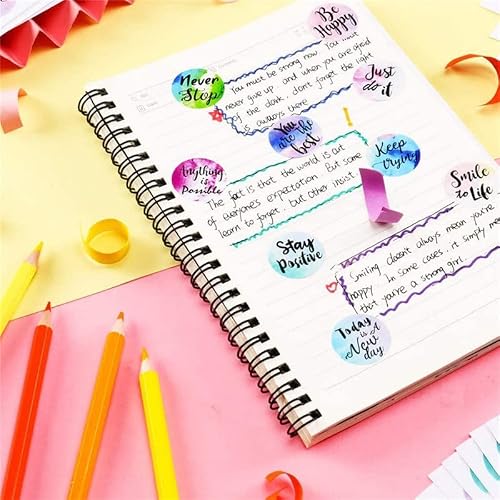 Be
Happy
Never
Stop
You must be strong now. You must
never give up. and when you are afraid
of the dark, don't forget the light
is always there
Just
do it
You
are the
Best
Keep
trying
Anything
is
Possible
The fact is that the world is out
of everyone's expectation. But some
learn to forget, but other insist
Smile
to Life
Stay
Positive
Smiling doesn't always mean you're
happy. In some cases, it simply mean
that you're a strong girl.
Today is A
New
day